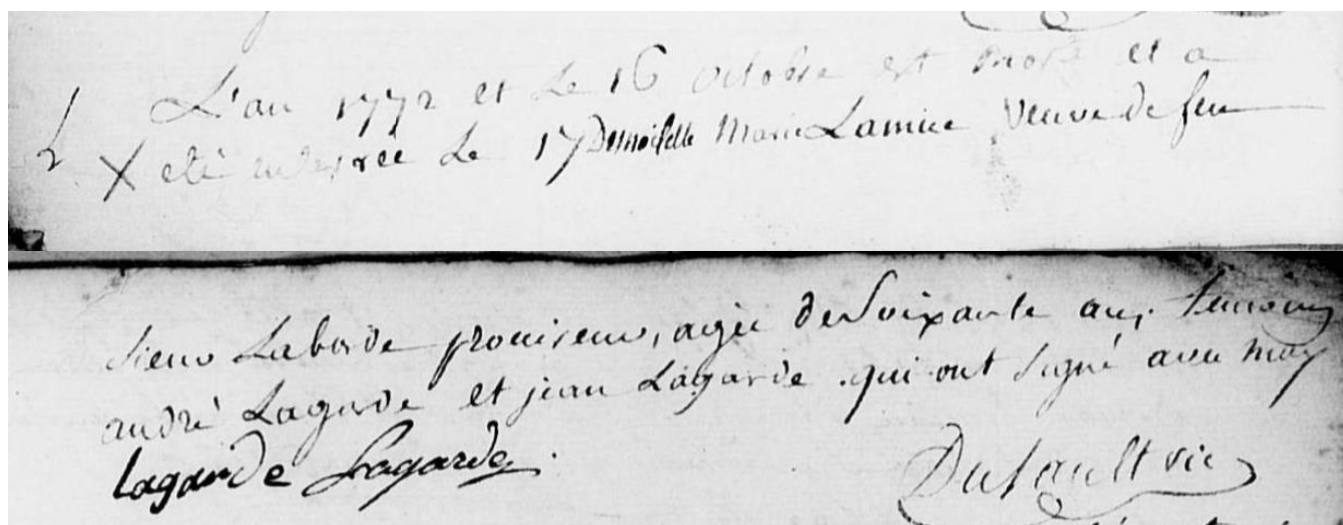 L'an 1772 et Le 16 octobre est morte et a
été enterrée Le 17 Demoiselle Marie Lamire Veuve de feu
Sieur Laborde proviseur, agée de Soixante ans, temoins
andré Lagarde et jean Lagarde qui ont signé avec moy
lagarde Lagarde
Dufault vic